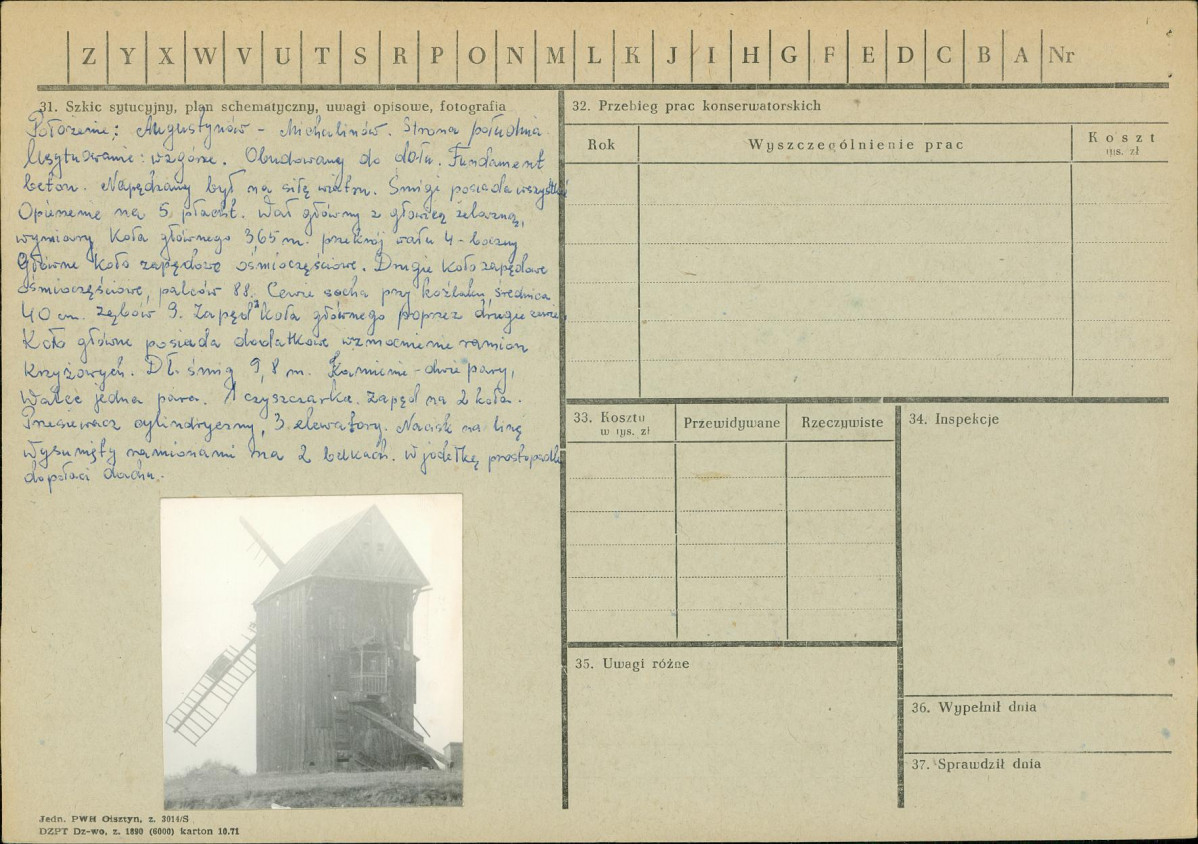 Z Y X W V U T S R P O N M L K J I H G F E D C B A Nr
31. Szkic sytucyjny, plan schematyczny, uwagi opisowe, fotografia
Położenie: Augustynów - Michalinów. Strona południa
Usytuowanie: wzgórze. Obudowany do dołu. Fundament
beton. Napędzany był na siłę wiatru. Śmigi posiada wszystkie
Opierzenie na 5 płacht. Wał główny z głowicą żelazną,
wymiary koła głównego 365 m. przekrój wału 4-boczny
Główne koło zapędowe ośmioczęściowe. Drugie koło zapędowe
ośmioczęściowe, palców 88. Cewie socha przy koźlaku, średnica
40 cm. zębów 9. Zapęd koła głównego poprzez drugie
Koło główne posiada dodatkowe wzmocnienie ramion
krzyżowych. Dł. śmig 9,8 m. Kamienie - dwie pary,
Walce jedna para. 1 czyszczarka. Zapęd na 2 koła.
Przesiewacz cylindryczny, 3 elewatory. Nacisk na linę
wysunięty ramionami na 2 belkach. W jodełkę prostopadle
do połaci dachu.
32. Przebieg prac konserwatorskich
Rok
Wyszczególnienie prac
Koszt
tys. zł
33. Kosztu
w tys. zł
Przewidywane
Rzeczywiste
34. Inspekcje
35. Uwagi różne
36. Wypełnił dnia
37. Sprawdził dnia
Jedn. PWH Olsztyn, z. 3014/S
DZPT Dz-wo, z. 1890 (6000) karton 10.71